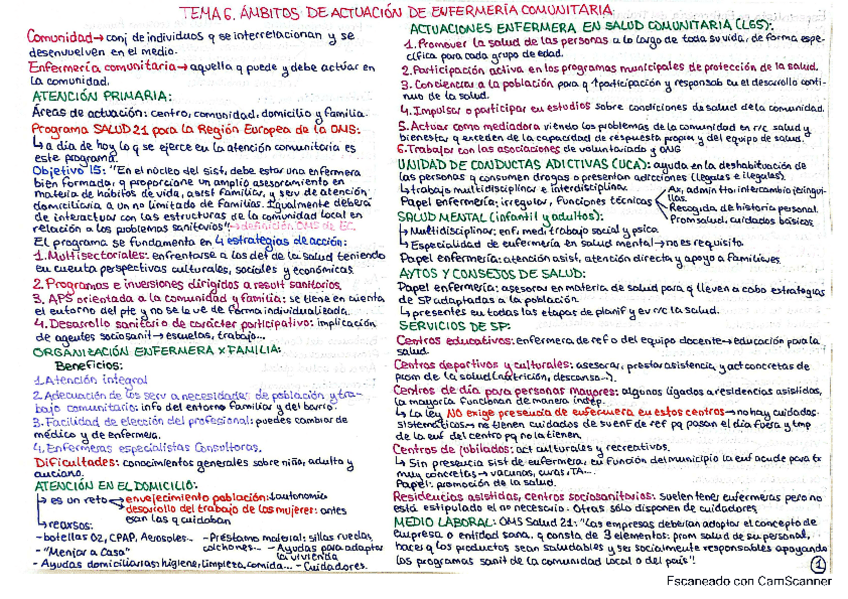 TEMA 6. ÁMBITOS DE ACTUACIÓN DE ENFERMERÍA COMUNITARIA
Comunidad → conj de individuos q se interrelacionan y se
desenvuelven en el medio.
Enfermería comunitaria → aquella q puede y debe actuar en
la comunidad.
ATENCIÓN PRIMARIA:
Áreas de actuación: centro, comunidad, domicilio y familia.
Programa SALUD 21 para la Región Europea de la OMS:
↳ a día de hoy lo q se ejerce en la atención comunitaria es
este programa.
Objetivo 15: "En el núcleo del sist, debe estar una enfermera
bien formada, q proporcione un amplio asesoramiento en
materia de hábitos de vida, asist familiar, y serv de atención
domiciliaria a un nº limitado de familias. Igualmente deberá
de interactuar con las estructuras de la comunidad local en
relación a los problemas sanitarios" → definición OMS de EC.
El programa se fundamenta en 4 estrategias de acción:
1. Multisectoriales: enfrentarse a los det de la salud teniendo
en cuenta perspectivas culturales, sociales y económicas.
2. Programas e inversiones dirigidos a result sanitarios.
3. APS orientada a la comunidad y familia: se tiene en cuenta
el entorno del pte y no se le ve de forma individualizada.
4. Desarrollo sanitario de carácter participativo: implicación
de agentes sociosanit → escuelas, trabajo...
ORGANIZACIÓN ENFERMERA x FAMILIA:
Beneficios:
1. Atención integral
2. Adecuación de los serv a necesidades de población y tra-
bajo comunitario: info del entorno familiar y del barrio.
3. Facilidad de elección del profesional: puedes cambiar de
médico y de enfermera.
4. Enfermeras especialistas Consultoras.
Dificultades: conocimientos generales sobre niño, adulto y
anciano.
ATENCIÓN EN EL DOMICILIO:
↳ es un reto → envejecimiento población: ↓autonomía
desarrollo del trabajo de las mujeres: antes
eran las q cuidaban
↳ recursos:
- botellas O2, CPAP, Aerosoles... - Préstamo material: sillas ruedas,
colchones...
- "Menjar a Casa" - Ayudas para adaptar
la vivienda
- Ayudas domiciliarias: higiene, limpieza, comida... - Cuidadores.
ACTUACIONES ENFERMERA EN SALUD COMUNITARIA (LGS):
1. Promover la salud de las personas a lo largo de toda su vida, de forma espe-
cífica para cada grupo de edad.
2. Participación activa en los programas municipales de protección de la salud.
3. Concienciar a la población para q ↑participación y responsab en el desarrollo conti-
nuo de la salud.
4. Impulsar o participar en estudios sobre condiciones de salud de la comunidad.
5. Actuar como mediadora viendo los problemas de la comunidad en r/c salud y
bienestar, q exceden de la capacidad de respuesta propia y del equipo de salud.
6. Trabajar con las asociaciones de voluntariado y ONG
UNIDAD DE CONDUCTAS ADICTIVAS (UCA): ayuda en la deshabituación de
las personas q consumen drogas o presentan adicciones (legales e ilegales).
↳ trabajo multidisciplinar e interdisciplinar.
Papel enfermería: irregular, Funciones técnicas
Ax, admin tto: intercambio jeringui-
llas.
Recogida de historia personal.
Prom salud, cuidados básicos.
SALUD MENTAL (infantil y adultos):
↳ Multidisciplinar: enf, med, trabajo social y psica.
↳ Especialidad de enfermería en salud mental → no es requisito.
Papel enfermería: atención asist, atención directa y apoyo a familiares.
AYTOS Y CONSEJOS DE SALUD:
Papel enfermería: asesorar en materia de salud para q lleven a cabo estrategias
de SP adaptadas a la población.
↳ presentes en todas las etapas de planif y ev r/c la salud.
SERVICIOS DE SP:
Centros educativos: enfermera de ref o del equipo docente → educación para la
salud.
Centros deportivos y culturales: asesorar, prestar asistencia y act concretas de
prom de la salud (nutrición, descanso...).
Centros de día para personas mayores: algunos ligados a residencias asistidas,
la mayoría funcionan de manera indep.
↳ La ley NO exige presencia de enfermera en estos centros → no hay cuidados
sistemáticos → no tienen cuidados de su enf de ref pq pasan el día fuera y tmp
de la enf del centro pq no la tienen.
Centros de jubilados: act culturales y recreativos.
↳ Sin presencia sist de enfermera, en función del municipio la enf acude para tx
muy concretos → vacunas, curas, TA...
Papel: promoción de la salud.
Residencias asistidas, centros sociosanitarios: suelen tener enfermeras pero no
está estipulado el nº necesario. Otras sólo disponen de cuidadores
MEDIO LABORAL: OMS Salud 21: "Las empresas deberían adoptar el concepto de
empresa o entidad sana, q consta de 3 elementos: prom salud de su personal,
hacer q los productos sean saludables y ser socialmente responsables apoyando
los programas sanit de la comunidad local o del país"!
1
Escaneado con CamScanner